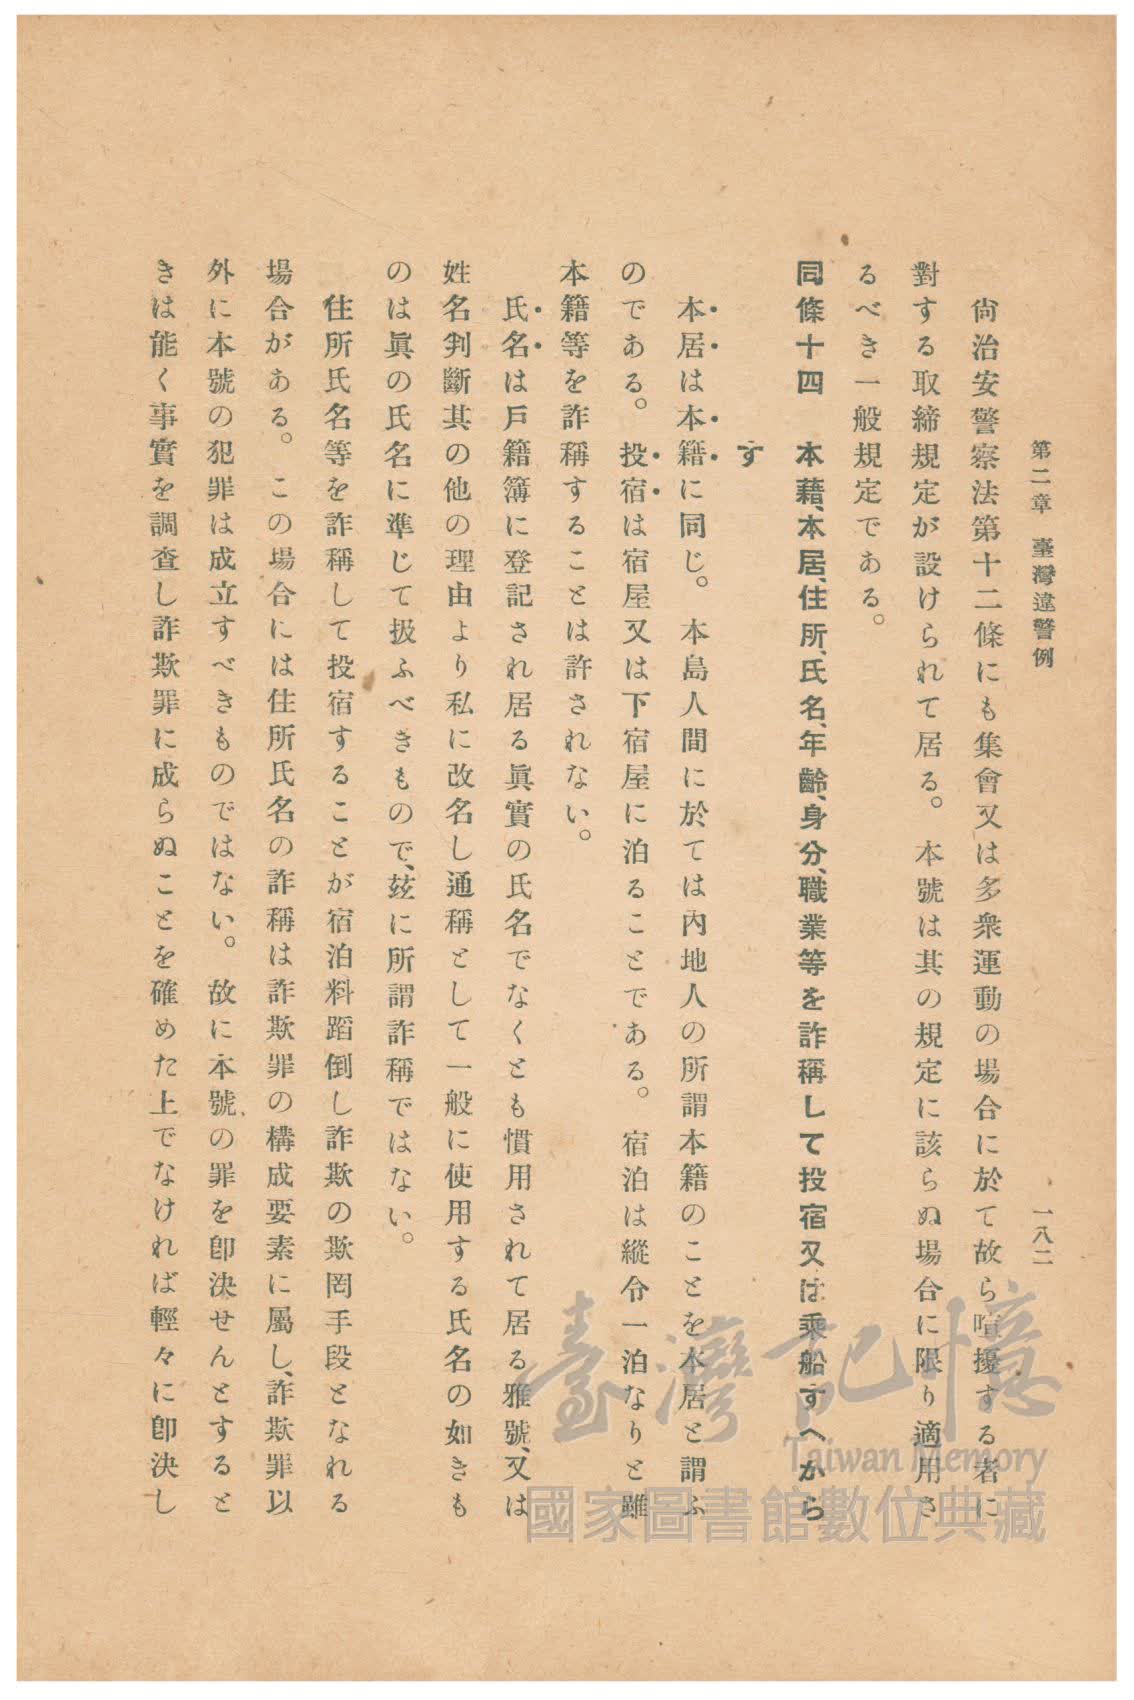 第二章　臺灣違警例
一八二
尙治安警察法第十二條にも集會又は多衆運動の場合に於て故ら喧擾する者に
對する取締規定が設けられて居る。本號は其の規定に該らぬ場合に限り適用さ
るべき一般規定である。
同條十四　本藉、本居、住所、氏名、年齡、身分、職業等を詐稱して投宿又は乘船すへから
す
本居は本籍に同じ。本島人間に於ては內地人の所謂本籍のことを本居と謂ふ
のである。投宿は宿屋又は下宿屋に泊ることである。宿泊は縱令一泊なりと雖
本籍等を詐稱することは許されない。
氏名は戶籍簿に登記され居る眞實の氏名でなくとも慣用されて居る雅號、又は
姓名判斷其の他の理由より私に改名し通稱として一般に使用する氏名の如きも
のは眞の氏名に準じて扱ふべきもので、玆に所謂詐稱ではない。
住所氏名等を詐稱して投宿することが宿泊料蹈倒し詐欺の欺罔手段となれる
場合がある。この場合には住所氏名の詐稱は詐欺罪の構成要素に屬し、詐欺罪以
外に本號の犯罪は成立すべきものではない。故に本號の罪を卽決せんとすると
きは能く事實を調查し詐欺罪に成らぬことを確めた上でなければ輕々に卽決し
臺灣記憶
Taiwan Memory
國家圖書館數位典藏